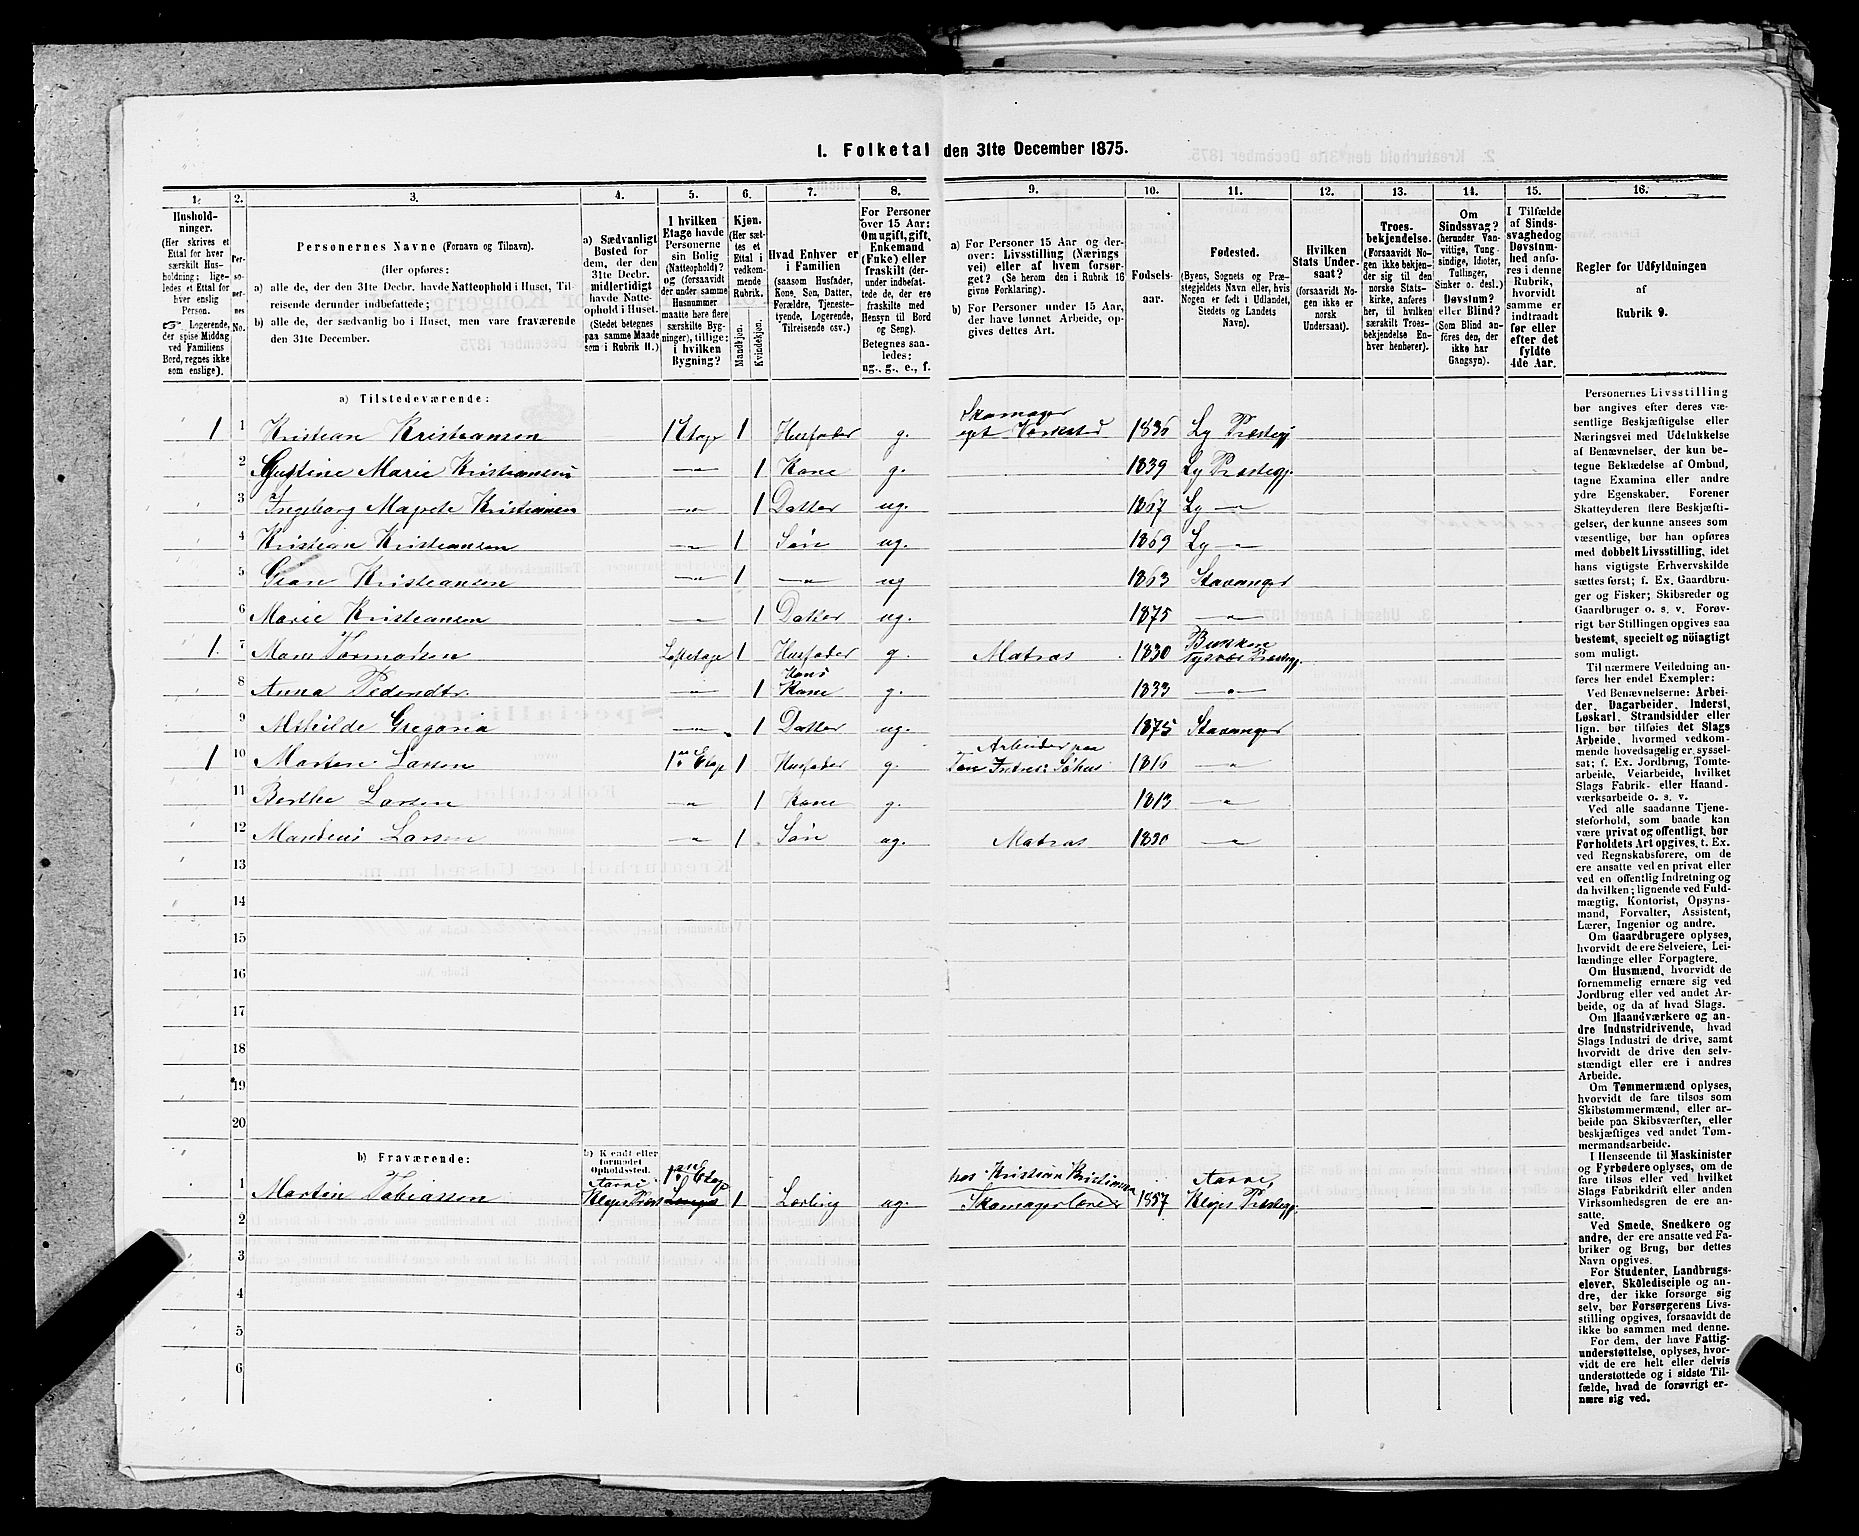 1. Folketal den 31te December 1875.
1. 2. 3. 4. 5. 6. 7. 8. 9. 10. 11. 12. 13. 14. 15. 16.
Hushold-
ninger.
(Her skrives et
Ettal for hver
særskilt Hus-
holdning; lige-
ledes et Ettal
for hver
enslig
Person.
Logerende,
der spise Middag
ved Familiens
Bord, regnes ikke
som enslige).
Per-
so-
ner-
nes
No.
Personernes Navne (Fornavn og Tilnavn).
(Her opføres:
a) alle de, der den 31te Decbr. havde Natteophold i Huset, Til-
reisende derunder indbefattede;
b) alle de, der sædvanlig bo i Huset, men vare fraværende
den 31te December.
a) Sædvanligt
Bosted for
dem, der den
31te Decbr.
midlertidigt
havde Natte-
ophold i Huset.
(Stedet betegnes
paa samme Maade
som i Rubrik 11.)
I hvilken
Etage havde
Personerne
sin Bolig
(Natteophold)?
og (forsaavidt
der under samme
Husnummer
maatte høre flere
særskilte Byg-
ninger), tillige:
i hvilken
Bygning?
Kjøn.
(Her sæt-
tes et
Ettal i
vedkom-
mende
Rubrik.
Mandkjøn.
Kvindekjøn.
Hvad Enhver er
i Familien
(saasom Husfader,
Kone, Søn, Datter,
Forældre, Tjeneste-
tyende, Logerende,
Tilreisende osv.)
For Personer
over 15 Aar:
Om ugift, gift,
Enkemand
(Enke) eller
fraskilt (der-
under indbefat-
tede de, der ere
fraskilte med
Hensyn til Bord
og Seng).
Betegnes saa-
ledes:
ug., g., e., f.
a) For Personer 15 Aar og der-
over: Livsstilling (Nærings-
vei) eller af hvem forsør-
get? (Se herom den i Rubrik 16
givne Forklaring).
b) For Personer under 15 Aar,
der have lønnet Arbeide, op-
gives dettes Art.
Fødsels-
aar.
Fødested.
(Byens, Sognets og Præ-
stegjeldets Navn eller, hvis
Nogen er født i Udlandet,
Stedets og Landets
Navn).
Hvilken
Stats Under-
saat?
(forsaavidt No-
gen ikke er
norsk
Undersaat).
Troes-
bekjendelse.
(Forsaavidt No-
gen ikke bekjen-
der sig til den
norske Stats-
kirke, anføres
her, til hvilken
særskilt Troes-
bekjendelse En-
hver henhører).
Om
Sindssvag?
(herunder Van-
vittige, Tung-
sindige, Idioter,
Tullinger,
Sinker o. desl.)
Døvstum?
eller Blind?
(Som Blind an-
føres den, der
ikke har
Gangsyn).
I Tilfælde
af Sinds-
svaghed og
Døvstum-
hed anfø-
res i denne
Rubrik,
hvorvidt
samme er
indtraadt
før eller
efter det
fyldte
4de Aar.
Regler for Udfyldningen
af
Rubrik 9.
a) Tilstedeværende:
1 1 Kristian Kristiansen 1 Etage 1 Husfader g. Skomager eget Værksted 1836 Ly Præstegj
2 Marie Kristiansen — " — 1 Kone g. 1839 Ly Præstegj.
3 Ingeborg Kristiansen — " — 1 Datter ug. 1867 Ly — " —
4 Kristian Kristiansen — " — 1 Søn ug. 1869 Ly — " —
5 Kristiansen — " — 1 — " — ug 1863 Stavanger
6 Marie Kristiansen 1 Datter ug. 1875 — " —
1. 7 Tormodsen Loftetage 1 Husfader g. Matros 1830 Præstegj.
8 Anna Pedersdtr. — " — 1 Hans Kone g. 1833 — " —
9 Mathilde Gregoria — " — 1 Datter ug. 1875 Stavanger
1 10 Morten Larsen 1ste Etage 1 Husfader g. Arbeider paa 1816 — " —
11 Berthe Larsen — " — 1 Kone g. 1813 — " —
12 Larsen — " — 1 Søn ug. Matros 1850 — " —
13
14
15
16
17
18
19
20
b) Fraværende:
b) Kjendt eller
formodet
Opholdssted.
1 Martin Tobiassen 1ste Etage 1 Lærling ug. hos Kristian Kristiansen Skomagerlærer 1857 Kleps Præstegj.
2
3
4
5
6
Personernes Livsstilling
bør angives efter deres væ-
sentlige Beskjæftigelse eller
Næringsvei med Udelukkelse
af Benævnelser, der kun be-
tegne Beklædelse af Ombud,
tagne Examina eller andre
ydre Egenskaber. Forener
Skatteyderen flere Beskjæfti-
gelser, der kunne ansees som
væsentlige, bør han opføres
med dobbelt Livsstilling, idet
hans vigtigste Erhvervskilde
sættes først; f. Ex. Gaardbru-
ger og Fisker; Skibsreder og
Gaardbruger o. s. v. Forøv-
rigt bør Stillingen opgives saa
bestemt, specielt og nöiagtigt
som muligt.
Til nærmere Veiledning an-
føres her endel Exempler:
Ved Benævnelserne: Arbei-
der, Dagarbeider, Inderst,
Løskarl, Strandsidder eller
lign. bør tilføies det Slags
Arbeide, hvormed vedkom-
mende hovedsagelig er syssel-
sat; f. Ex. Jordbrug, Tomte-
arbeide, Veiarbeide, hvilket
Slags Fabrik- eller Haand-
værksarbeide o. s. v.
Ved alle saadanne Tjene-
steforhold, som baade kan
være privat og offentligt, bør
Forholdets Art opgives, t. Ex.
ved Regnskabsførere, om de
ere ansatte ved en privat eller
ved en offentlig Indretning og
da hvilken; lignende ved Fuld-
mægtig, Kontorist, Opsyns-
mand, Forvalter, Assistent,
Lærer, Ingeniør og andre.
Om Gaardbrugere oplyses,
hvorvidt de ere Selveiere, Lei-
lændinge eller Forpagtere.
Om Husmænd, hvorvidt de
fornemmelig ernære sig ved
Jordbrug eller ved andet Ar-
beide, og da af hvad Slags.
Om Haandværkere og an-
dre Industridrivende, hvad
Slags Industri de drive, samt
hvorvidt de drive den selv-
stændigt eller ere i andres
Arbeide.
Om Tømmermænd oplyses,
hvorvidt de fare tilsøs som
Skibstømmermænd, eller ar-
beide paa Skibsværfter, eller
beskjæftiges ved andet Tøm-
mermandsarbeide.
I Henseende til Maskinister
og Fyrbødere oplyses, om de
fare tilsøs eller ved hvilket
Slags Fabrikdrift eller anden
Virksomhedsgren de ere an-
satte.
Ved Smede, Snedkere og
andre, der ere ansatte ved Fa-
briker og Brug, bør dettes
Navn opgives.
For Studenter, Landbrugs-
elever, Skoledisciple og an-
dre, der ikke forsørge sig
selv, bør Forsørgerens Livs-
stilling opgives, forsaavidt de
ikke bo sammen med denne.
For dem, der have Fattig-
understøttelse, oplyses, hvor-
vidt de ere helt eller delvis
understøttede og i sidste Til-
fælde, hvad de forøvrigt er-
nære sig ved.